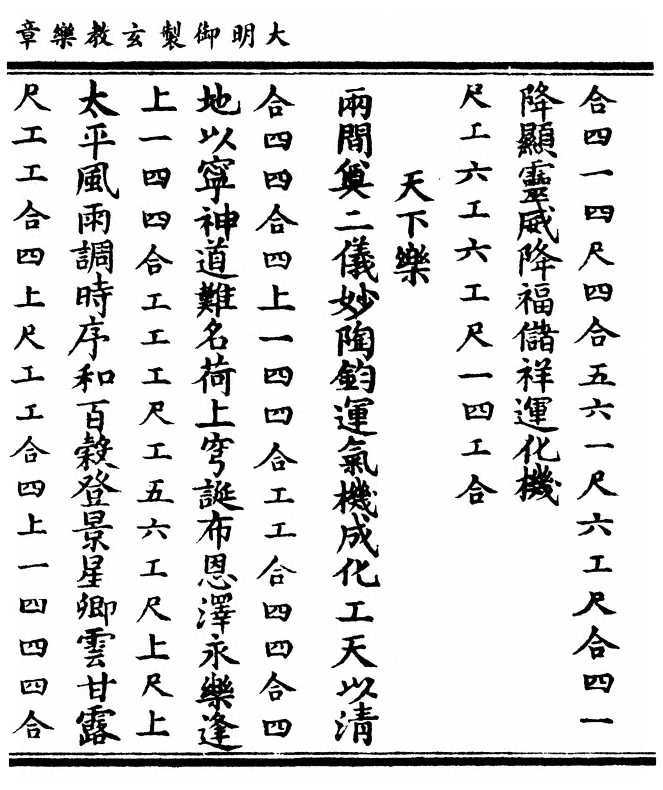 大明御製玄教樂章
合四一四尺四合五六一尺六工尺合四一
降顯靈威降福儲祥運化機
尺工六工六工尺一四工合
天下樂
兩間奠二儀妙陶鈞運氣機成化工天以清
合四四合四上一四四合工工合四四合四
地以寧神道難名荷上穹誕布恩澤永樂逢
上一四四合工工工尺工五六工尺上尺上
太平風雨調時序和百穀登景星卿雲甘露
尺工工合四上尺工工合四上一四四四合